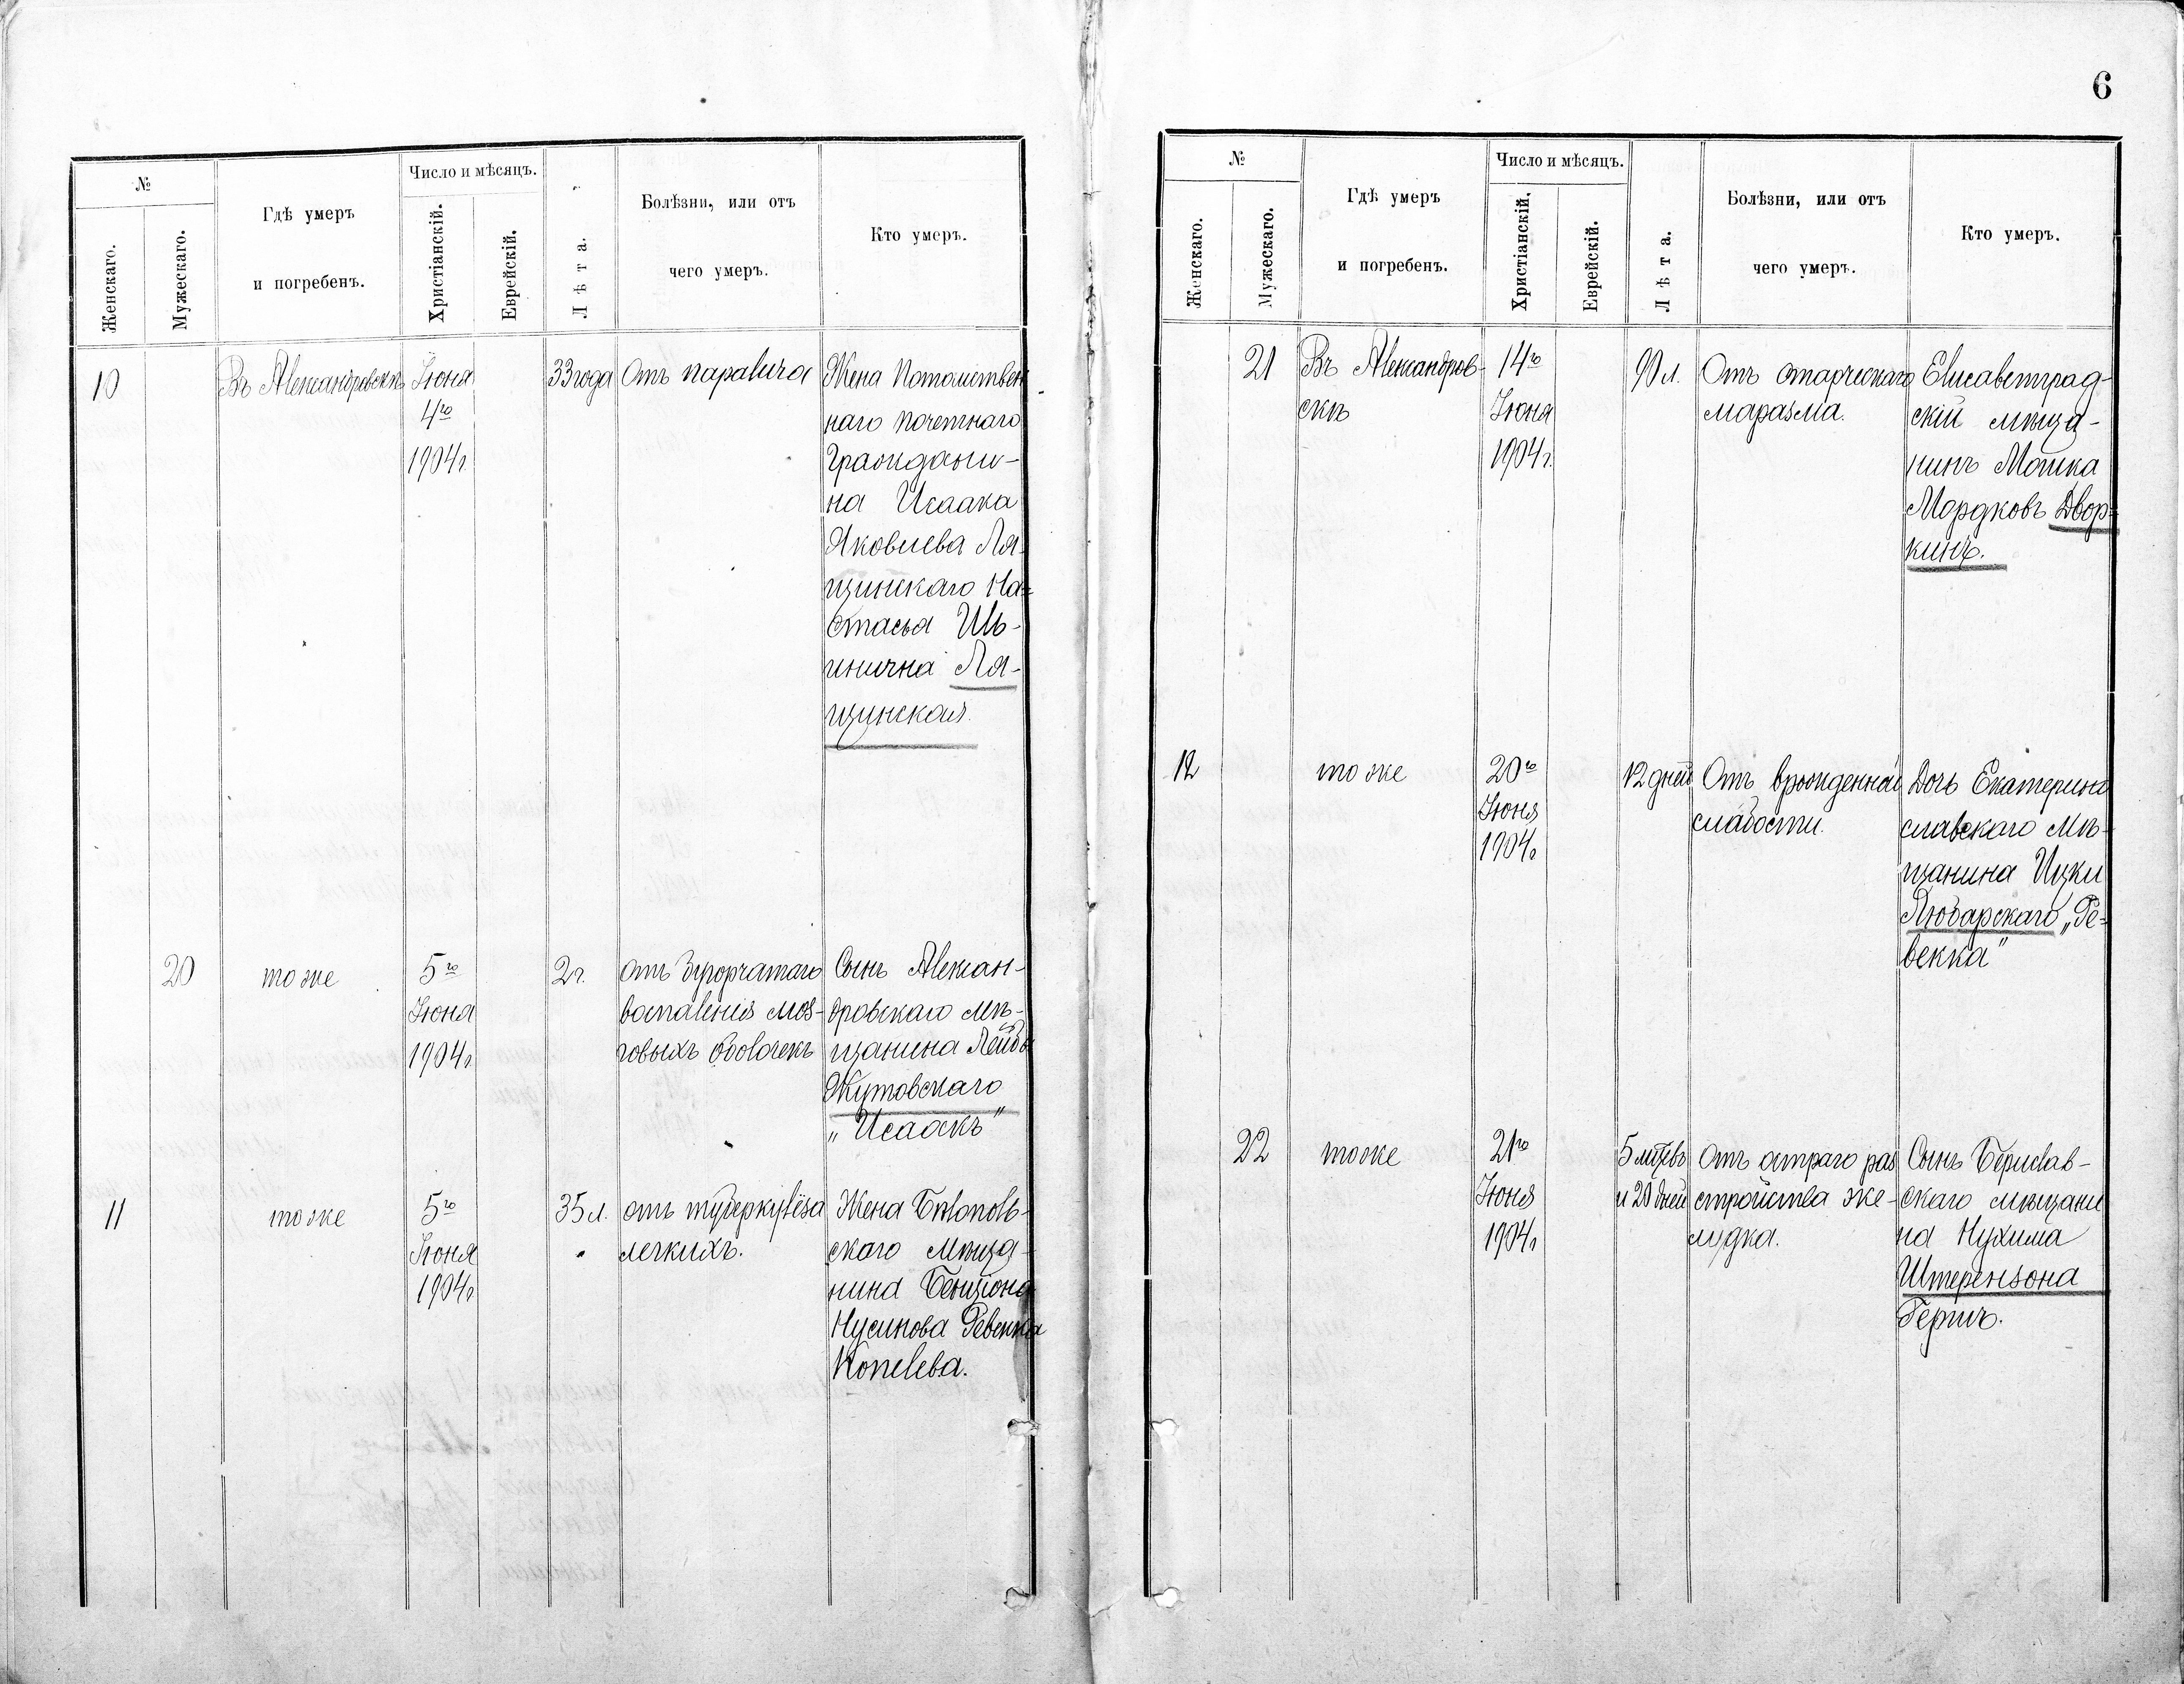 6
№
Женскаго.
Мужескаго.
Гдѣ умеръ
и погребенъ.
Число и мѣсяцъ.
Христіанскій.
Еврейскій.
Лѣта.
Болѣзни, или отъ
чего умеръ.
Кто умеръ.
10
Въ Александровскѣ
Іюня
4го
1904г.
33 года
Отъ паралича
Жена Потомствен
наго почетнаго
Граждани-
на Исаака
Яковлева Ля-
щинскаго На-
стасья Иль-
инична Ля-
щинская.
20
тоже
5го
Іюня
1904г.
2г.
отъ бугорчатаго
воспаленія моз-
говыхъ оболочекъ
Сынъ Алексан-
дровскаго мѣ-
щанина Лейбы
Жутовскаго
„Исаакъ"
11
тоже
5го
Іюня
1904г.
35 л.
отъ туберкулёза
легкихъ.
Жена Бѣлополь-
скаго мѣща-
нина Бенціона
Нусинова Ревекка
Копелева.
№
Женскаго.
Мужескаго.
Гдѣ умеръ
и погребенъ.
Число и мѣсяцъ.
Христіанскій.
Еврейскій.
Лѣта.
Болѣзни, или отъ
чего умеръ.
Кто умеръ.
21
Въ Александров-
скѣ
14го
Іюня
1904г.
90 л.
Отъ старческаго
маразма.
Елисаветград-
скій мѣща-
нинъ Мошка
Мордковъ Двор-
кинъ.
12
тоже
20го
Іюня
1904г.
12 дней
Отъ врожденной
слабости.
Дочь Екатерино
славскаго мѣ-
щанина Ицки
Любарскаго „Ре-
векка"
22
тоже
21го
Іюня
1904г.
5 мѣсяцевъ
и 20 дней
Отъ остраго раз
стройства же-
лудка.
Сынъ Берислав-
скаго мѣщани
на Нухима
Штерензона
Гершъ.